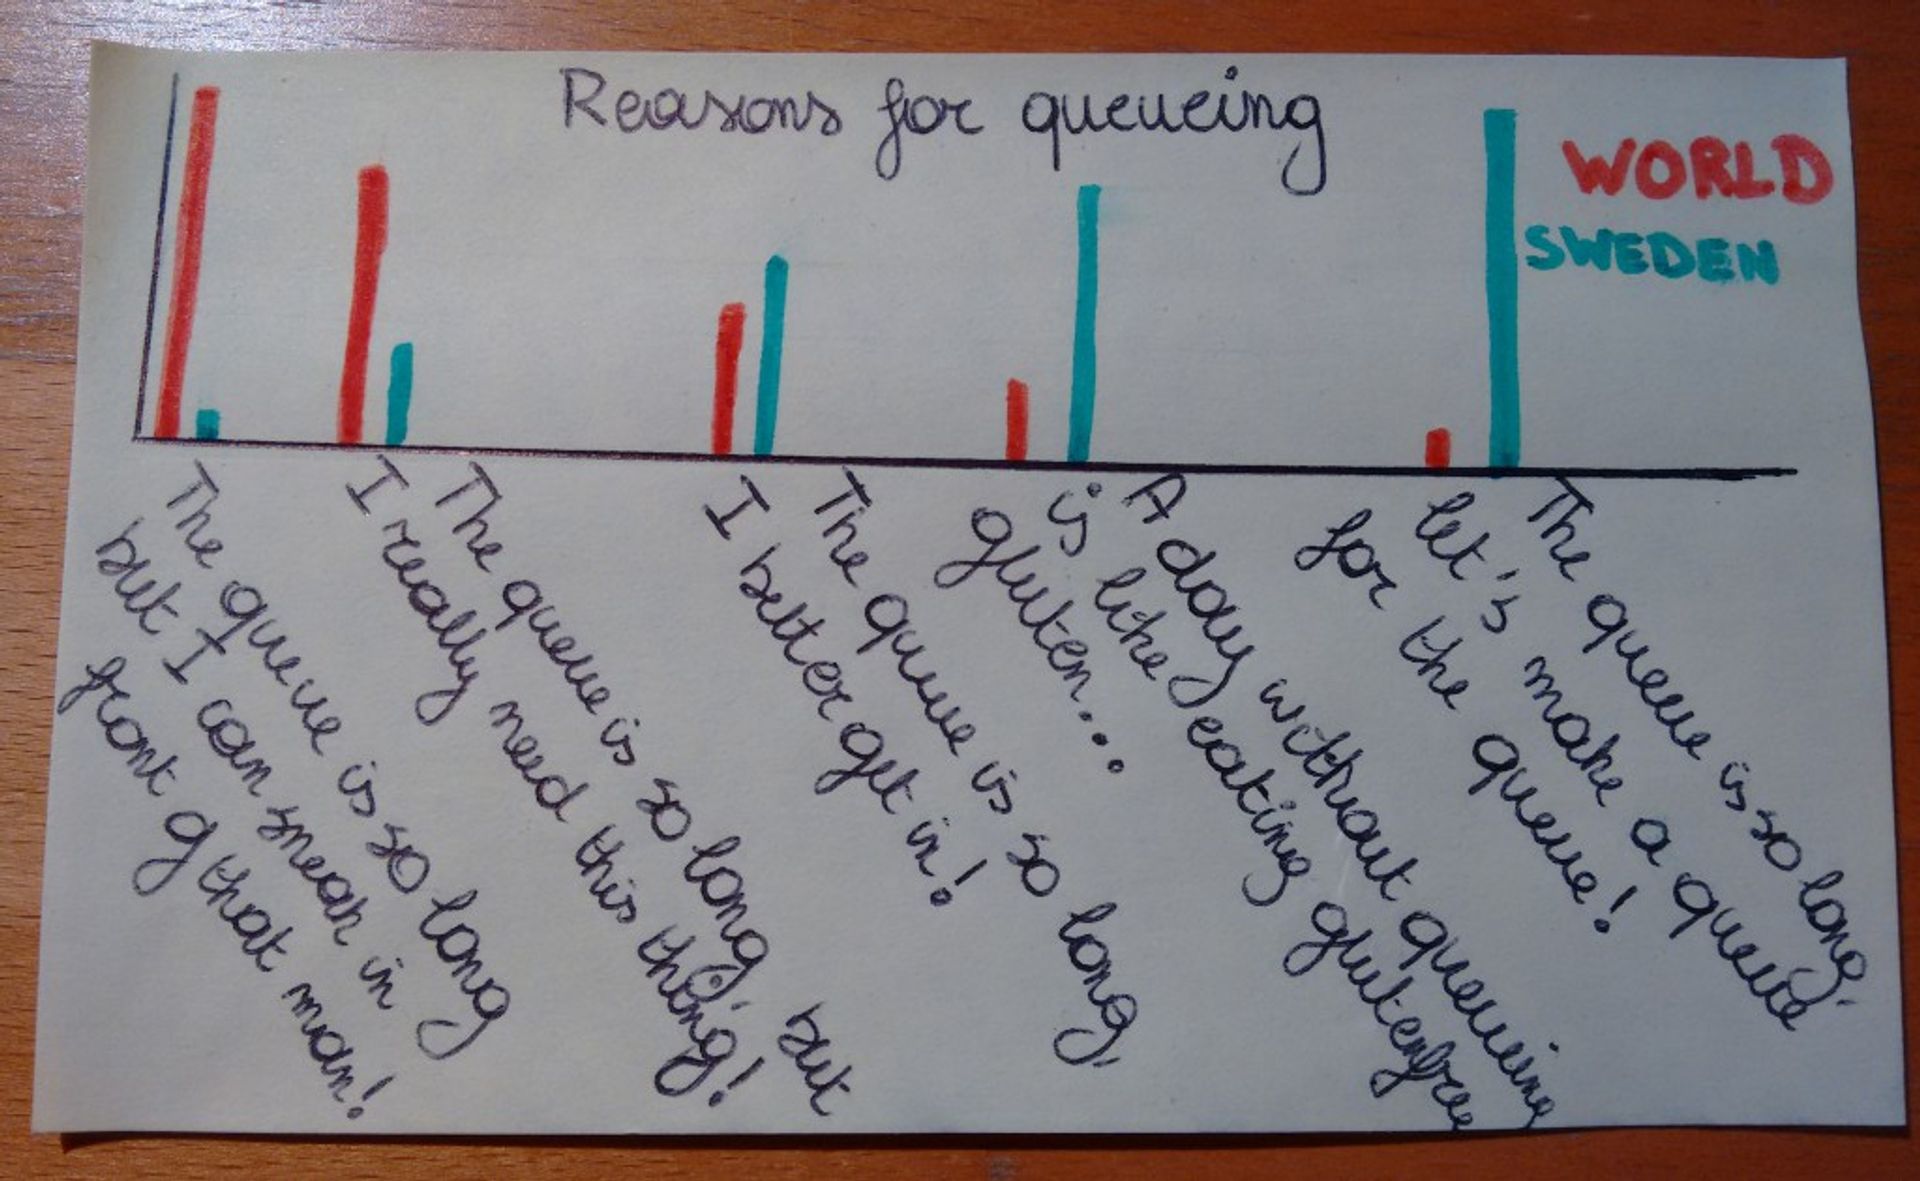 Reasons for queueing
WORLD
SWEDEN
The queue is so long
but I can sneak in
front of that man!
The queue is so long, but
I really need this thing!
The queue is so long,
I better get in!
A day without queueing
is like eating glutenfree
gluten...
The queue is so long,
let's make a queue
for the queue!